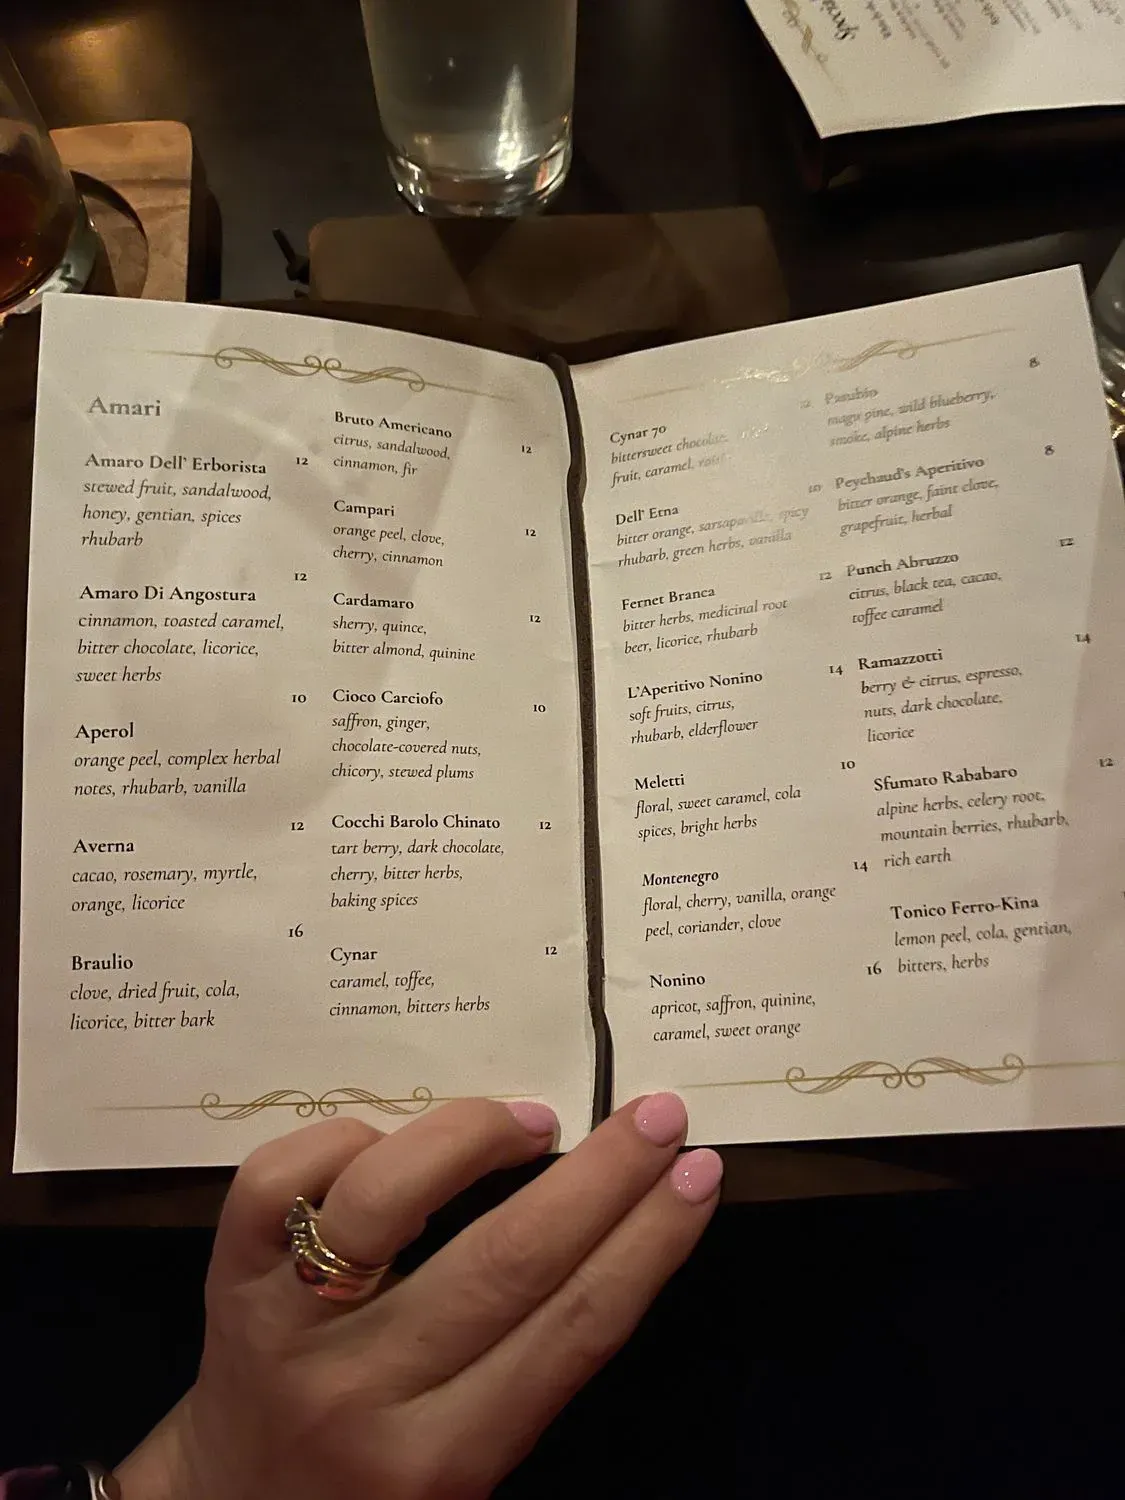 Amari
Amaro Dell' Erborista 12
stewed fruit, sandalwood,
honey, gentian, spices
rhubarb
12
Amaro Di Angostura
cinnamon, toasted caramel,
bitter chocolate, licorice,
sweet herbs
10
Aperol
orange peel, complex herbal
notes, rhubarb, vanilla
12
Averna
cacao, rosemary, myrtle,
orange, licorice
16
Braulio
clove, dried fruit, cola,
licorice, bitter bark
Bruto Americano
citrus, sandalwood, 12
cinnamon, fir
Campari
orange peel, clove, 12
cherry, cinnamon
Cardamaro
sherry, quince, 12
bitter almond, quinine
Cioco Carciofo 10
saffron, ginger,
chocolate-covered nuts,
chicory, stewed plums
Cocchi Barolo Chinato 12
tart berry, dark chocolate,
cherry, bitter herbs,
baking spices
Cynar 12
caramel, toffee,
cinnamon, bitters herbs
12
Cynar 70
bittersweet chocolate,
fruit, caramel,
10
Dell' Etna
bitter orange, sarsaparilla, spicy
rhubarb, green herbs, vanilla
12
Fernet Branca
bitter herbs, medicinal root
beer, licorice, rhubarb
14
L'Aperitivo Nonino
soft fruits, citrus,
rhubarb, elderflower
10
Meletti
floral, sweet caramel, cola
spices, bright herbs
14
Montenegro
floral, cherry, vanilla, orange
peel, coriander, clove
16
Nonino
apricot, saffron, quinine,
caramel, sweet orange
8
Pasubio
magu pine, wild blueberry,
smoke, alpine herbs
8
Peychaud's Aperitivo
bitter orange, faint clove,
grapefruit, herbal
12
Punch Abruzzo
citrus, black tea, cacao,
toffee caramel
14
Ramazzotti
berry & citrus, espresso,
nuts, dark chocolate,
licorice
12
Sfumato Rababaro
alpine herbs, celery root,
mountain berries, rhubarb,
rich earth
Tonico Ferro-Kina
lemon peel, cola, gentian,
bitters, herbs